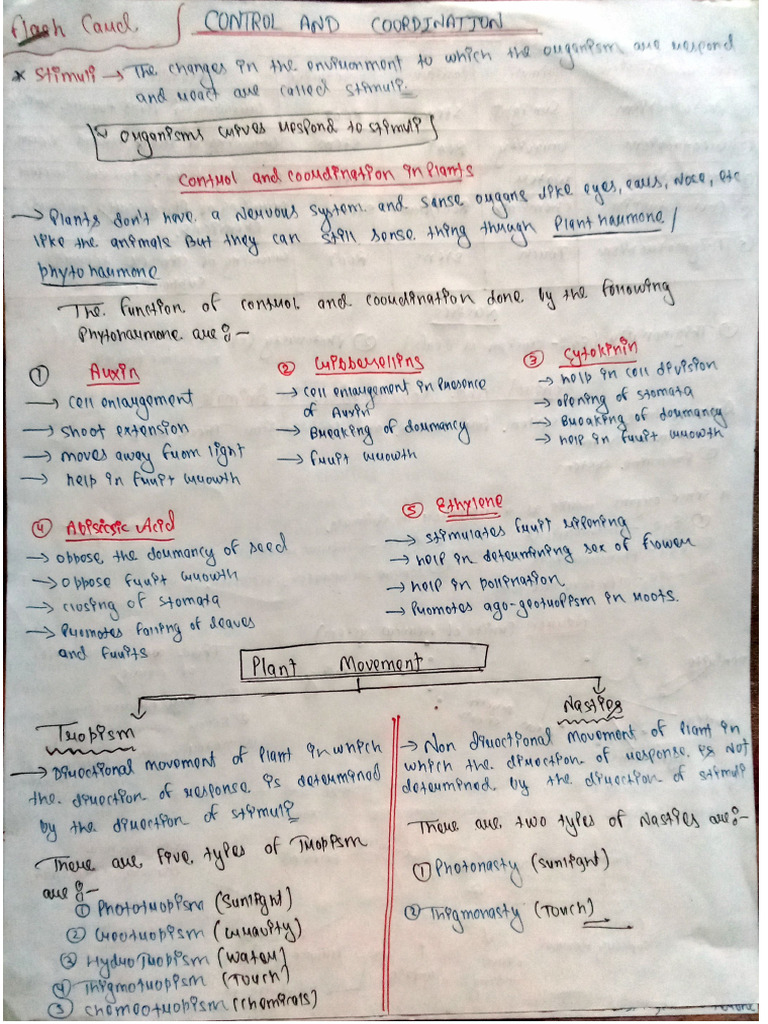 Flash Card
CONTROL AND COORDINATION
* Stimuli → The changes in the environment to which the organism are respond
and react are called stimuli.
organisms curves respond to stimuli
Control and coordination in Plants
→ Plants don't have a Nervous system and sense organs like eyes, ears, Nose, etc
like the animals But they can still sense thing through Plant harmone/
phyto harmone
The function of control and coordination done by the following
Phytoharmone are:-
① Auxin
→ cell enlargement
→ shoot extension
→ moves away from light
→ help in fruit growth
② Gibberellins
→ cell enlargement in Presence
of Auxin
→ Breaking of dormancy
→ fruit growth
③ Cytokinin
→ help in cell division
→ opening of stomata
→ Breaking of dormancy
→ help in fruit growth
④ Abiscsic Acid
→ oppose the dormancy of seed
→ oppose fruit growth
→ closing of stomata
→ Promotes falling of leaves
and fruits
⑤ Ethylene
→ stimulates fruit ripening
→ help in determining sex of flower
→ help in pollination
→ Promotes ago-geotropism in roots.
Plant Movement
Tropism
→ Directional movement of Plant in which
the direction of response is determined
by the direction of stimuli
There are five types of Tropism
are :-
① Phototropism (sunlight)
② Geotropism (Gravity)
③ Hydrotropism (water)
④ Thigmotropism (Touch)
⑤ Chemeotropism (chemicals)
Nasties
→ Non directional movement of Plant in
which the direction of response is Not
determined by the direction of stimuli
There are two types of Nasties are:-
① Photonasty (sunlight)
② Thigmonasty (Touch)